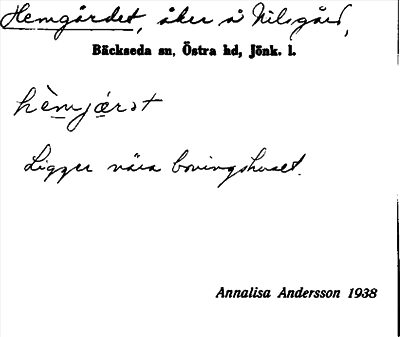 Hemgärdet, åker å Nilsgård,
Bäckseda sn, Östra hd, Jönk. l.
hèmjærət
Ligger nära boningshuset.
Annalisa Andersson 1938